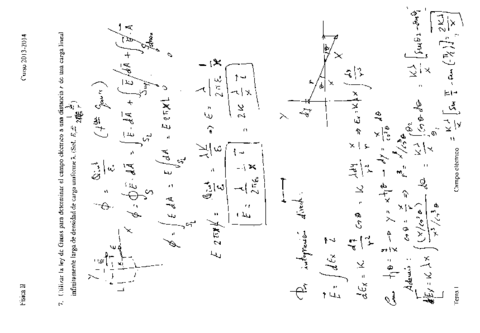 Física II Curso 2013-2014
7. Utilizar la ley de Gauss para determinar el campo eléctrico a una distancia r de una carga lineal
infinitamente larga de densidad de carga uniforme λ. (Sol.
Φ = Qint/ε₀
Φ = ∮ E dA = ∫ E·dA + ∫ E dA + ∫ E·A
Φ = ∫ E dA = E ∫ dA = E 2πxL
E 2πxL = Qint/ε₀ = λL/ε₀ ⇒ E = λ/2πε₀x
E = λ/2πε₀x i = 2Kλ/x i
Por integración directa:
E = ∫ dEx i
dEx = K dq/r² cosθ = K λdy/r² x/r ⇒ Ex = Kλx ∫ dy/r³
Como tgθ = y/x → y = x tgθ → dy = x/cos²θ dθ
Además: cosθ = x/r ⇒ r³ = x³/cos³θ
Ex = Kλx ∫ (x/cos²θ)/(x³/cos³θ) dθ = Kλ/x ∫ cosθ dθ = Kλ/x [senθ₂ - senθ₁]
= Kλ/x [sen π/2 - sen(-π/2)] = 2Kλ/x
Tema 1 Campo eléctrico